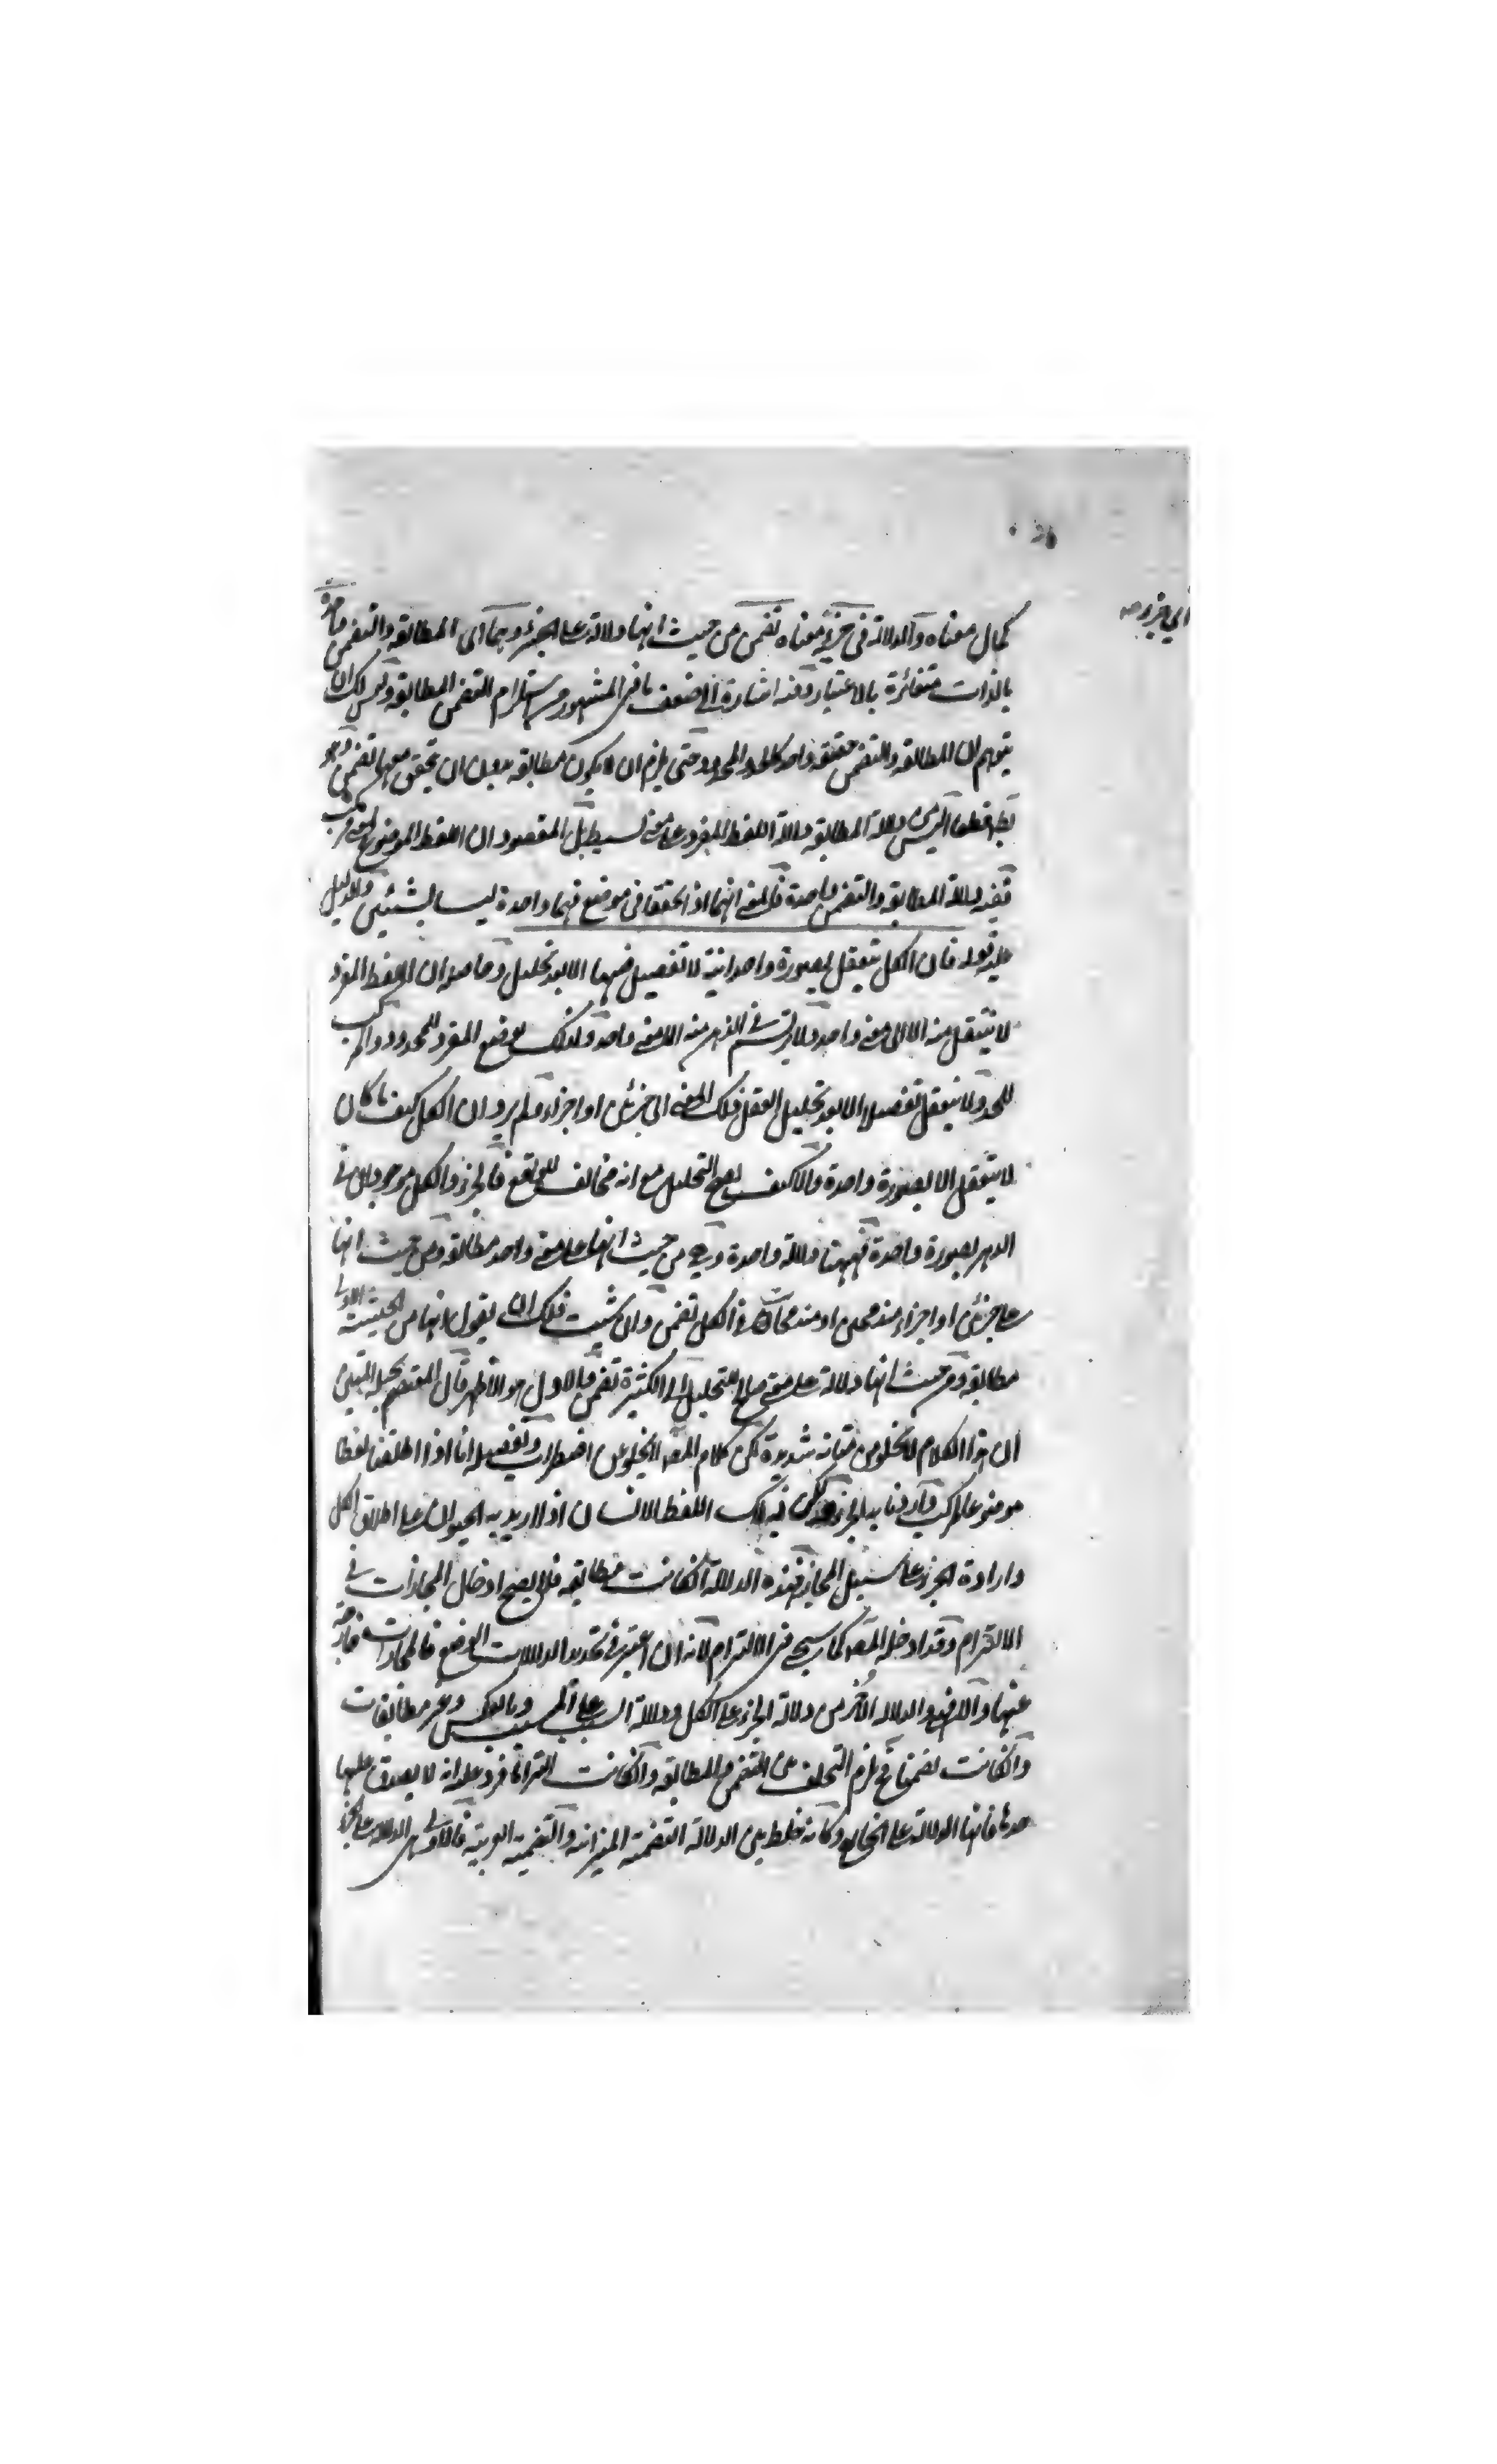 كمال معناه والدلالة فى جزء معناه تضمن من حيث انها دلالة على الجزء وهما اى المطابقة والتضمن
بالذات متغائرة بالاعتبار وفيه اشارة الى ضعف ما فى المشهور من استلزام التضمن المطابقة وليس لك ان
يتوهم ان المطابقة والتضمن حقيقة واحد كالحد والمحدود حتى يلزم ان لا يكون مطابقة بدون ان تحقق معها تضمن وهو
بط قطعا اليس من دلالة المطابقة دلالة اللفظ المفرد على معنى بسيط بل المقصود ان اللفظ الموضوع لمعنى مركب
ففيه دلالة المطابقة والتضمن واحدة فالمعنى انهما اذا تحققا فى موضع فهما واحدة ليسا بشيئين والدليل
عليه قوله فان الكل يتعقل بصورة واحدانية لا تفصيل فيها الا بعد تحليل وحاصله ان اللفظ المفرد
لا ينتقل منه الا الى معنى واحد ولا يرتسم فى الذهن منه الا معنى واحد ولذلك يوضع المفرد للمحدود والمركب
للحد ولا يتعقل تفصيلا الا بعد تحليل العقل ذلك المعنى الى جزئين او اجزاء ولم يرد ان الكل كيف ما كان
لا يتعقل الا بصورة واحدة والا كيف يصح التحليل مع انه مخالف للواقع فالجزء والكل موجودان فى
الذهن بصورة واحدة فههنا دلالة واحدة وهى من حيث انها على معنى واحد مطابقة ومن حيث انها
على جزئين او اجزاء مندمجين او مندمجات فى الكل تضمن وان شئت فلك ان يقول انها من الحيثية الاولى
مطابقة ومن حيث انها دلالة على معنى صالح للتحليل الى الكثيرة تضمن والاول هو الاظهر قال المعتصم بحبله المتين
ان هذا الكلام لا يخلو من متانة شديدة لكن كلام المصه لا يخلو عن اضطراب وتفصيله انا اذا اطلقنا لفظا
موضوعا لمركب واردنا به الجزء كان ذلك اللفظ الانسان اذا اريد به الحيوان على اطلاق الكل
وارادة الجزء على سبيل المجاز فهذه الدلالة ان كانت مطابقة فلا يصح ادخال المجازات فى
الالتزام وقد ادخله المصه كما سيجئ فى الالتزام لانه ان اعتبر فى تحديد الدلالات الوضع فالمجازات خارجة
عنها والا فهذه الدلالة من دلالة الجزء على الكل ودلالة السبب على المسبب وبالعكس وغير مطابقات
وان كانت تضمنا فح يلزم التخلف بين التضمن والمطابقة وان كانت التزاما فيرد عليه انه لا يصدق عليها
حدها فانها الدلالة على الخارج وكانه خلط بين الدلالة التضمنية الميزانية والتضمنية العربية فالاولى الدلالة على الجزء